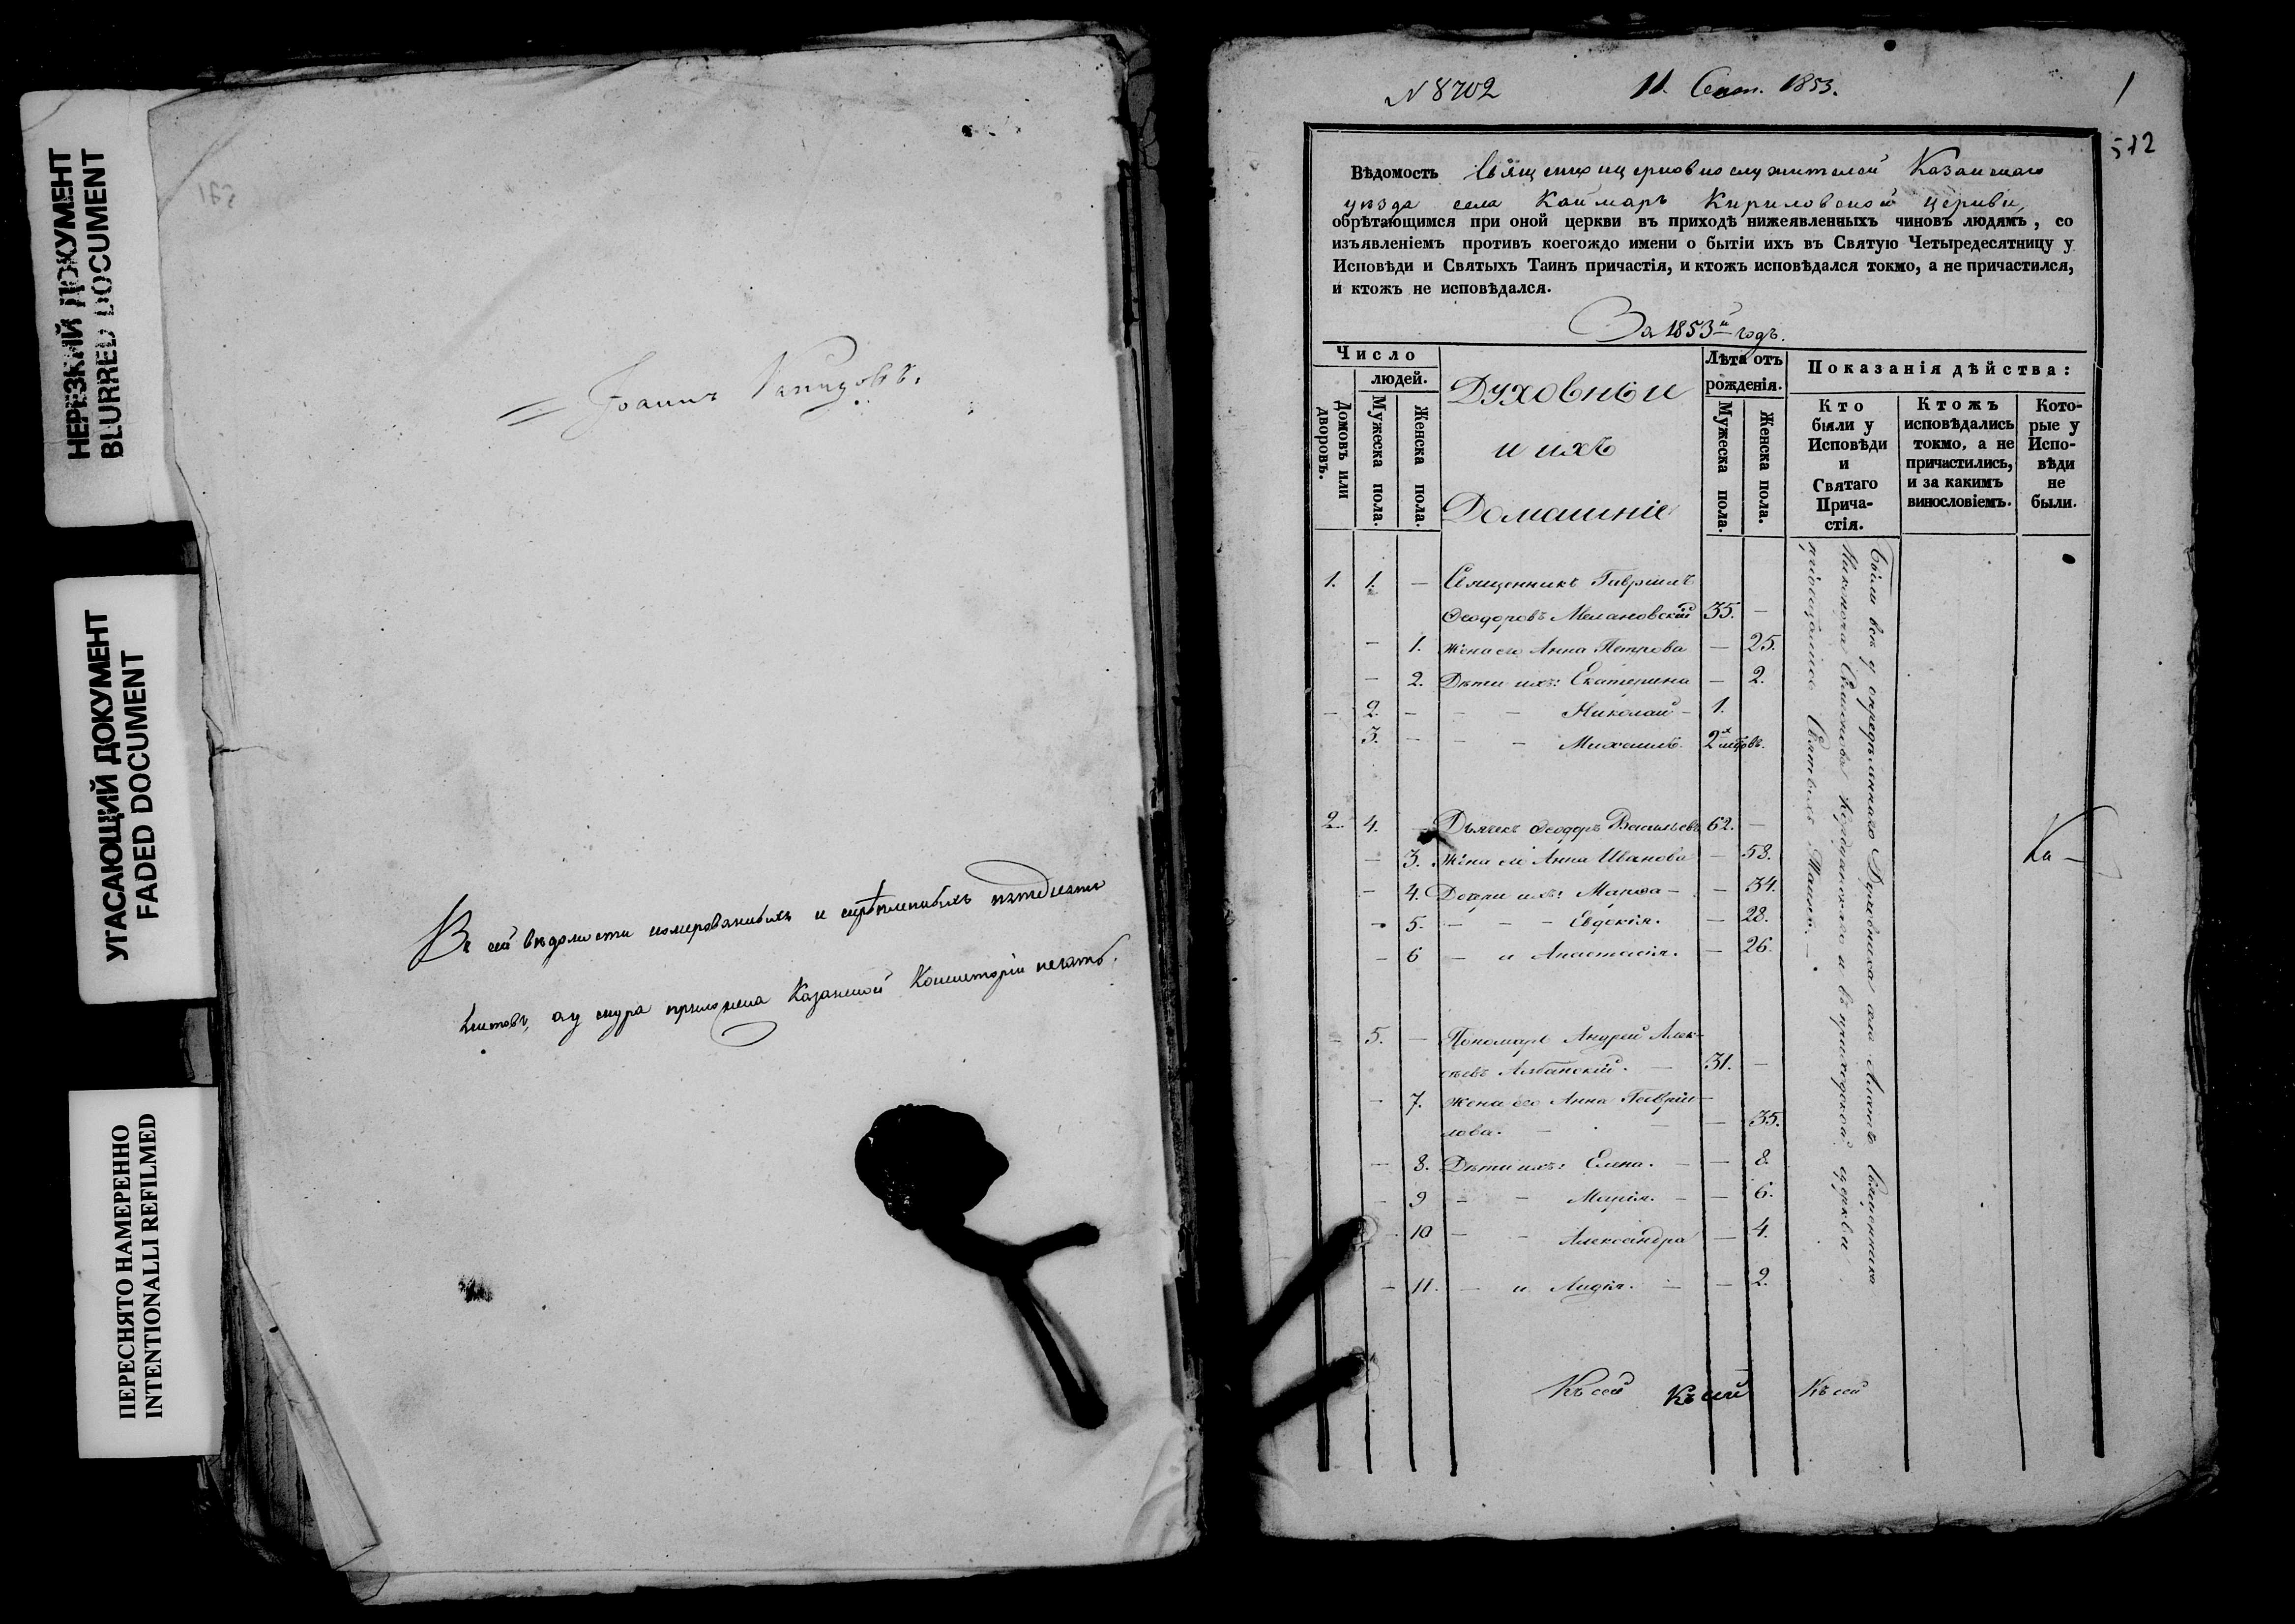 НЕРЕЗКИЙ ДОКУМЕНТ
BLURRED DOCUMENT
УГАСАЮЩИЙ ДОКУМЕНТ
FADED DOCUMENT
ПЕРЕСНЯТО НАМЕРЕННО
INTENTIONALLI REFILMED
Іоаннъ
Въ сей вѣдомости номерованныхъ и скрѣпленныхъ пятдесятъ
листовъ, а у снура приложена Казанской Консисторіи печать.
N 8702 11. Сент. 1853. 1
512
Вѣдомость Священноцерковнослужителей Казанскаго
уѣзда села Каймаръ Кириловской церкви,
обрѣтающимся при оной церкви въ приходѣ нижеявленныхъ чиновъ людямъ, со
изъявленіемъ противъ коегождо имени о бытіи ихъ въ Святую Четыредесятницу у
Исповѣди и Святыхъ Таинъ причастія, и ктожъ исповѣдался токмо, а не причастился,
и ктожъ не исповѣдался.
За 1853й годъ.
Число
людей.
Домовъ или дворовъ.
Мужеска пола.
Женска пола.
Духовныи
и ихъ
Домашніе
Лѣта отъ
рожденія.
Мужеска пола.
Женска пола.
Показанія дѣйства:
Кто
были у
Исповѣди
и
Святаго
Прича-
стія.
Ктожъ
исповѣдались
токмо, а не
причастились,
и за какимъ
винословіемъ.
Кото-
рые у
Испо-
вѣди
не
были.
1. 1. — Священникъ Гавріилъ
Ѳеодоровъ Мелановскій 35. —
— 1. Жена его Анна Петрова — 25.
— 2. Дѣти ихъ: Екатерина — 2.
— 2. — — — Николай — 1.
3. — — — Михаилъ. 2х мѣсяцовъ.
2. 4. — Дьячекъ Ѳеодоръ Васильевъ 62. —
— 3. Жена его Анна Иванова — 58.
— 4. Дочери ихъ: Марѳа — — 34.
— 5. — — — Евдокія. — 28.
— 6 — и Анастасія. — 26.
— 5. — Пономарь Андрей Алек-
сѣевъ Албанскій. — 31. —
— 7. Жена его Анна Гавріи-
лова. — — — 35.
— 8. Дѣти ихъ: Елена. — — 8.
— 9 — — Марія. — — 6.
10 — — Александра — 4.
— 11. — и Лидія. — — 2.
Были всѣ у опредѣленнаго Духовника села Священника
и въ приходской церкви
пріобщались Святыхъ Таинъ. —
Ка —
Къ сей Къ сей Къ сей